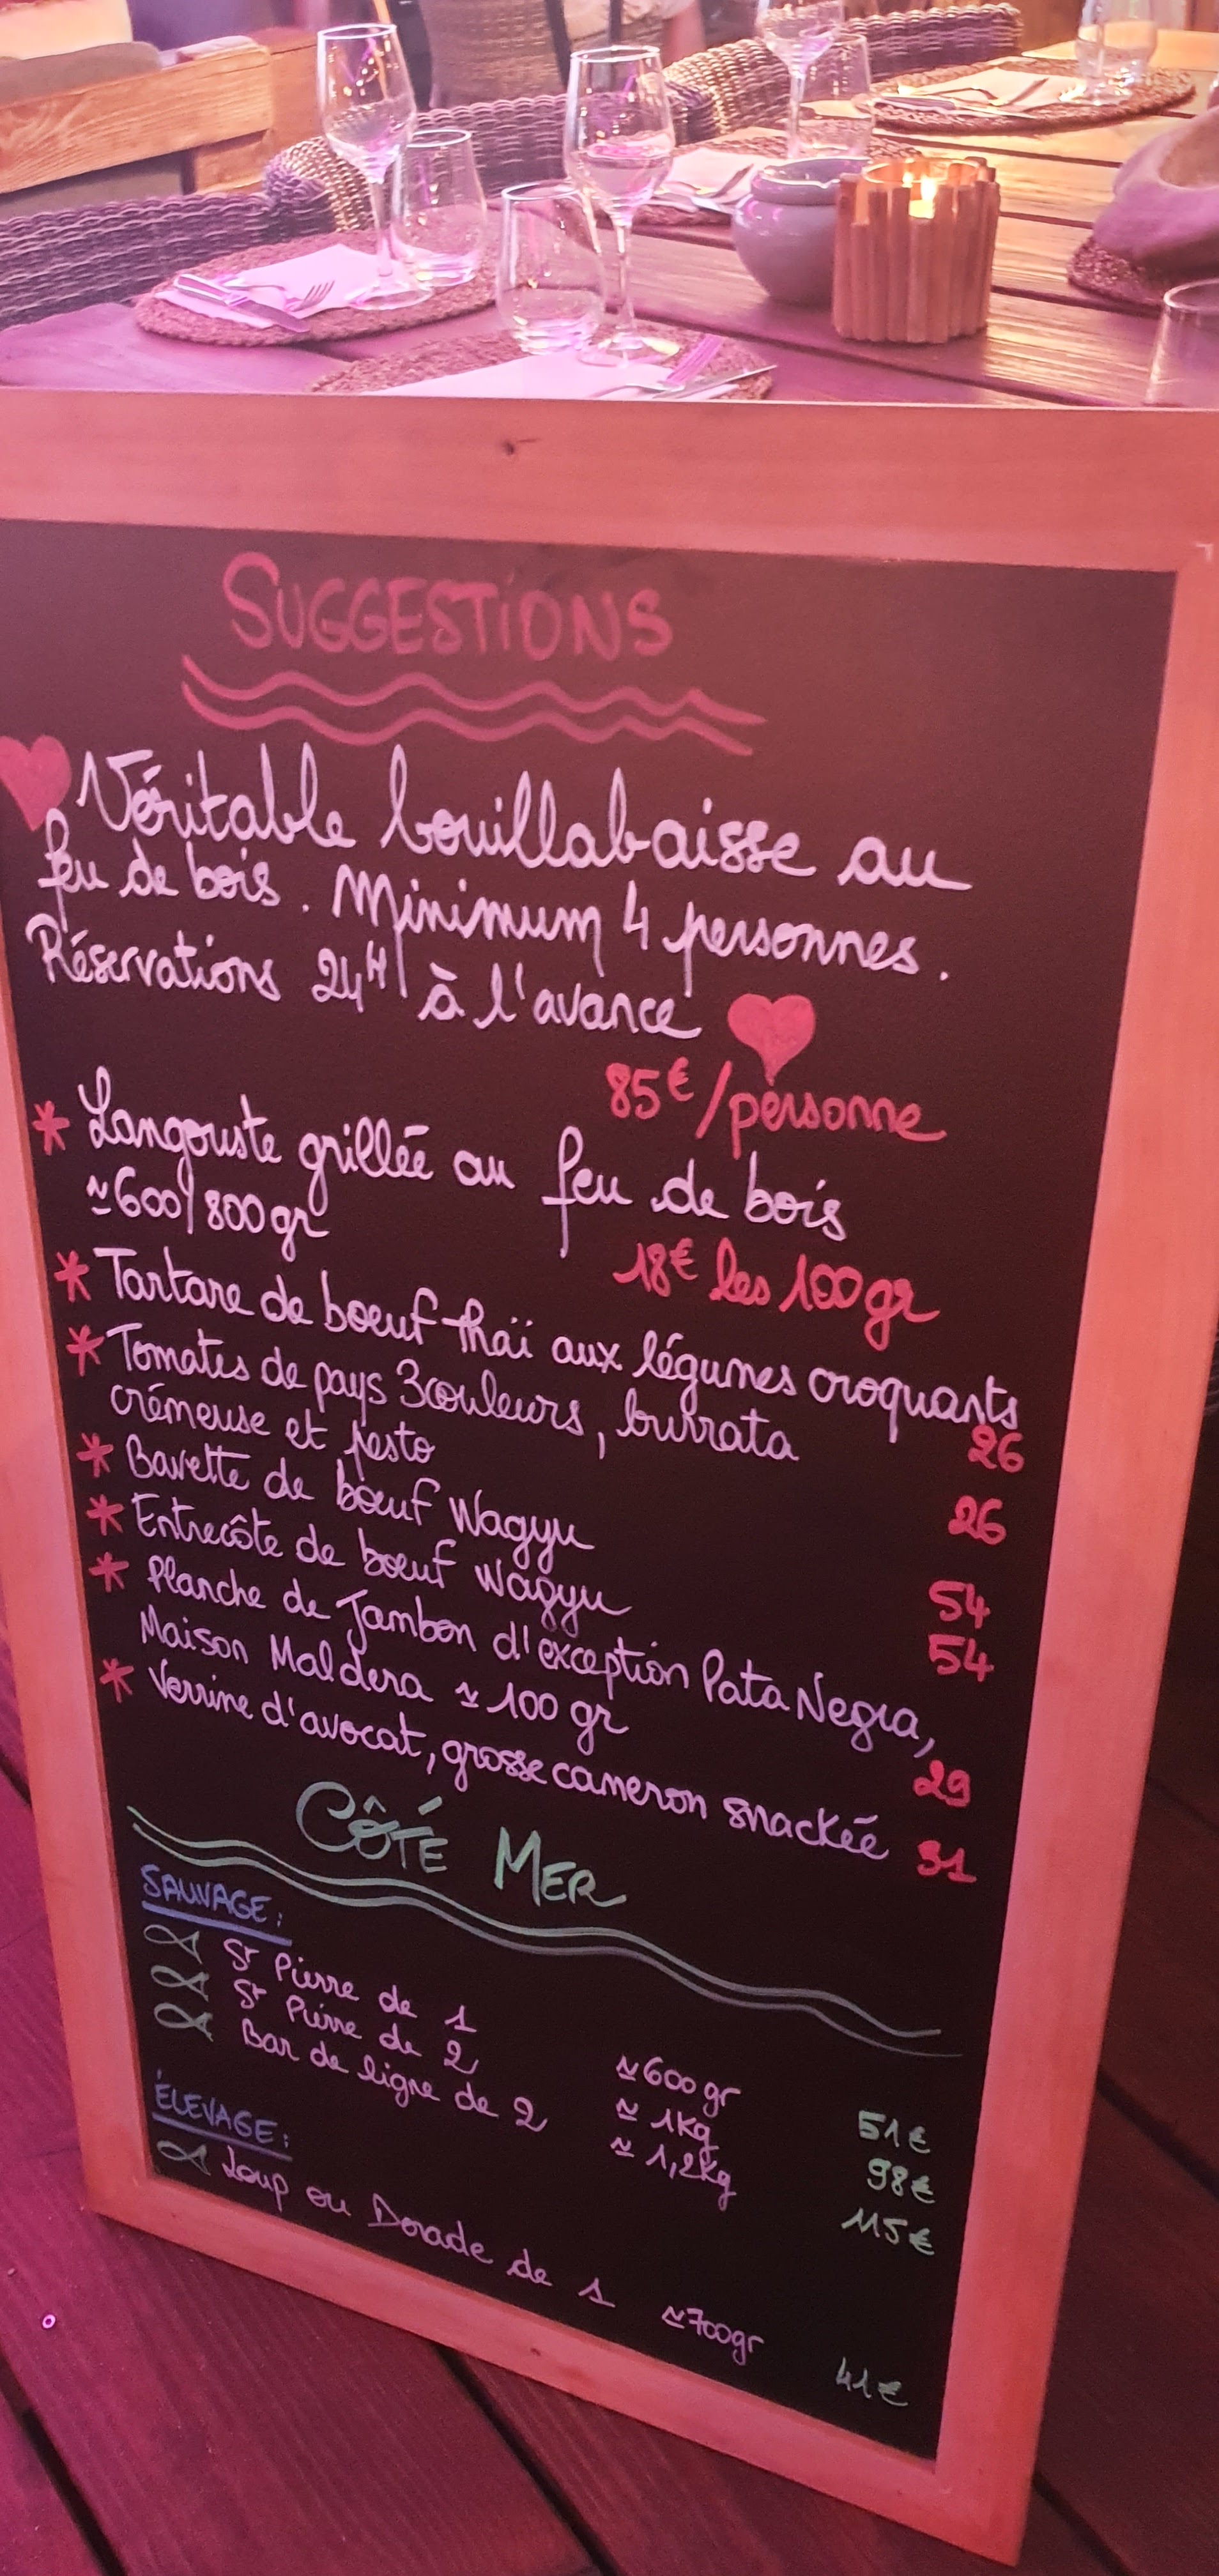 SUGGESTIONS
Véritable bouillabaisse au
feu de bois. Minimum 4 personnes.
Réservations 24H à l'avance
85€/personne
* Langouste grillée au feu de bois
≃600/800gr
18€ les 100gr
* Tartare de boeuf thaï aux légumes croquants
26
* Tomates de pays 3couleurs, burrata
crémeuse et pesto
26
* Bavette de boeuf Wagyu
54
* Entrecôte de boeuf Wagyu
54
* Planche de Jambon d'exception Pata Negra,
Maison Maldera ≃ 100 gr
29
* Verrine d'avocat, grosse cameron snackée 31
CÔTÉ MER
SAUVAGE:
St Pierre de 1 ≃600gr 51€
St Pierre de 2 ≃ 1Kg 98€
Bar de ligne de 2 ≃ 1,2Kg 115€
ÉLEVAGE:
Loup ou Dorade de 1 ≃700gr 41€